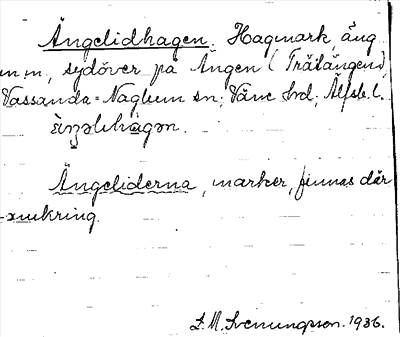 Ängelidhagen. Hagmark, äng
m m, sydöver på Ängen (Trätängen),
Vassanda-Naglum sn; Väne hrd; Älfsb. l.
Ängeliderna, marker, finnas där
omkring.
L. M. Svenungsson. 1936.